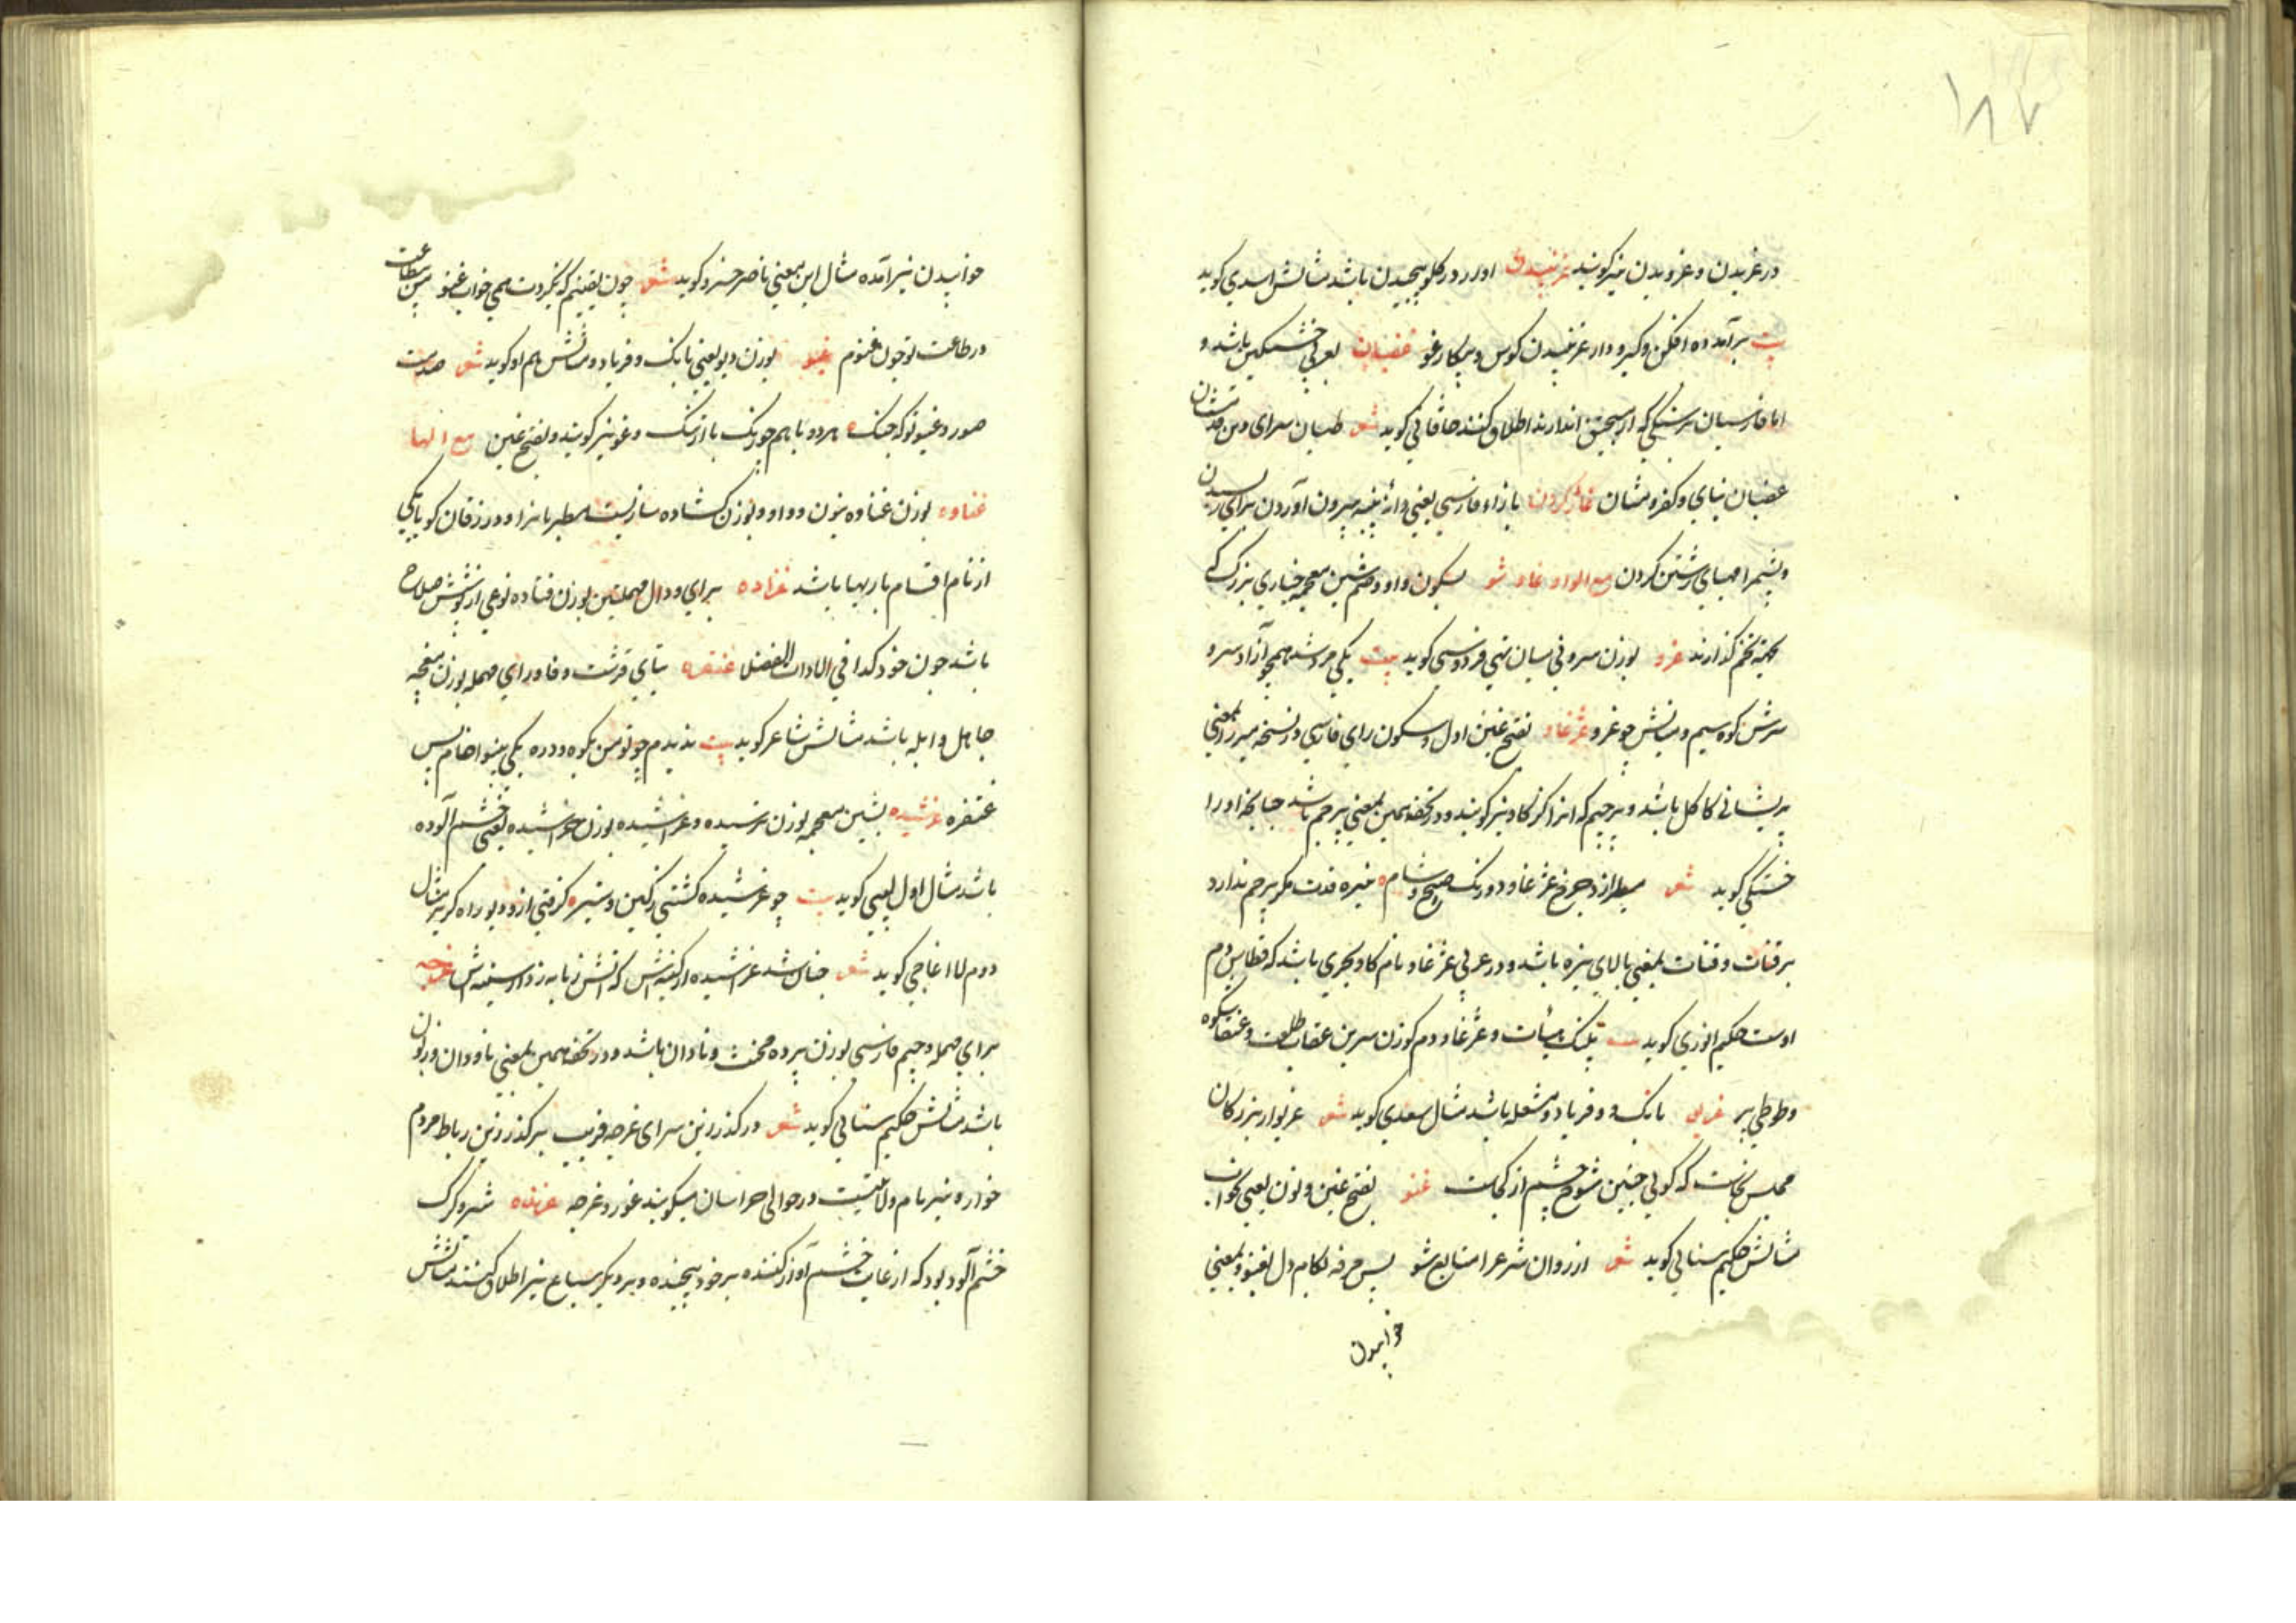 ۱۸۷
در غریدن و غرویدن نیز گویند غرنبیدن اواز در گلو پیچیدن باشد مثالش اسدی گوید
بیت برآمد ده افکن و گیر و دار غرنبیدن کوس و پیکار غو غضبان بعربی خشمگین باشد و
اما فارسیان بر سنگی که از منجنیق اندازند اطلاق کنند خاقانی گوید شعر
غضبان غاژ کردن با زاء فارسی یعنی دانه پنبه بیرون آوردن برای ریسیدن
و پشم را مهیای رشتن کردن مع الواو غاوشو بسکون واو و ضم شین معجمه خیاری بزرگ که
بجهته تخم گذارند غرو بوزن سرو نی میان تهی فردوسی گوید بیت یکی مرد شد همچو آزاد سرو
برش کوه سیم و میانش چو غرو غژغاو بفتح غین اول و سکون زای فارسی در نسخه میرزا بمعنی
پریشانی کاکل باشد و پرچم که انرا کژگاو نیز گویند و در تحفه همین بمعنی پرچم باشد چنانچه او را
خشتکی گوید شعر مطراز چرخ غژغاو دو رنک صبح و شام نیزه قدت مگر پرچم ندارد
برقنات و قنات بمعنی بالای نیزه باشد و در عربی غژغاو نام گاو بحری باشد که قطاس دم
اوست حکیم انوری گوید بیت پلنک هیئات و غژغاو دم گوزن سرین عقاب طلعت و عنقا شکوه
و طوطی پر غریو بانک و فریاد و مشغله باشد مثال سعدی گوید شعر غریو از بزرکان
مجلس بخاست که گویی چنین شوخ چشم از کجاست غنو بفتح غین و نون یعنی بخواب
مثالش حکیم سنائی گوید شعر از روان شرع را متابع شو پس مرفه بکام دل بغنو و بمعنی
خوابیدن
خوابیدن نیز آمده مثال این بمعنی ناصر خسرو گوید شعر چون یقینم که نگیردت همی خواب غنو من بی طاعت
در طاعت تو چون غنوم غیو بوزن دیو یعنی بانک و فریاد و مثالش هم او گوید شعر صدیت
صور و غیو تو که جنک هردو با هم و غو نیز گویند و بفتح غین مع الها
غناوه بوزن غناوه بنون و واو و بوزن کشاده سازیست مطربانرا و در زفان گویا یکی
از نام اقسام باریها باشد غراده برای و دال مهملتین بوزن فتاده نوعی از پوشش صلاح
باشد چون خود کذا فی الادات الفضلا غتفره بتای قرشت و فا و رای مهمله بوزن
جاهل و ابله باشد مثالش شاعر گوید بیت ندیدم چو تو من بکوه و دره یکی بینوا خام پس
غتفره غرشیده بشین معجمه بوزن ترسیده و غراشیده بوزن خراشیده یعنی خشم آلوده
باشد مثال اول لبیبی گوید بیت چو غرشیده گشتی ز کین و ستیزه گرفتی از و دیو راه گریز مثال
دوم را اغاجی گوید شعر چنان شد غراشیده از کینه‌اش که آتش زبانه زد از سینه‌اش غرچه
برای مهمله و جیم فارسی بوزن پرده مخنث و نادان باشد و در تحفه همین بمعنی نادوان و زبون
باشد مثالش حکیم سنائی گوید شعر در گذر زین سرای غرچه فریب بر گذر زین رباط مردم
خوار و نیز نام ولایتیست در حوالی خراسان میگویند غور و غرچه غرنده شیر و گرگ
خشم آلود بود که از غایت خشم آواز کننده بر خود پیچنده و بر دیگر سباع نیز اطلاق کنند مثالش